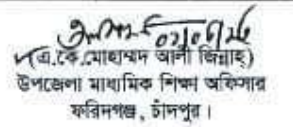 (এ.কে.মোহাম্মদ আলী জিন্নাহ্)
উপজেলা মাধ্যমিক শিক্ষা অফিসার
ফরিদগঞ্জ, চাঁদপুর।